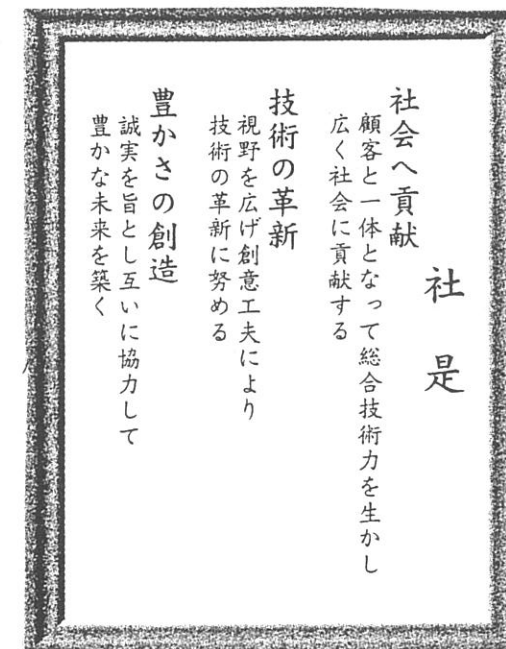 社是
社会へ貢献
顧客と一体となって総合技術力を生かし
広く社会に貢献する
技術の革新
視野を広げ創意工夫により
技術の革新に努める
豊かさの創造
誠実を旨とし互いに協力して
豊かな未来を築く